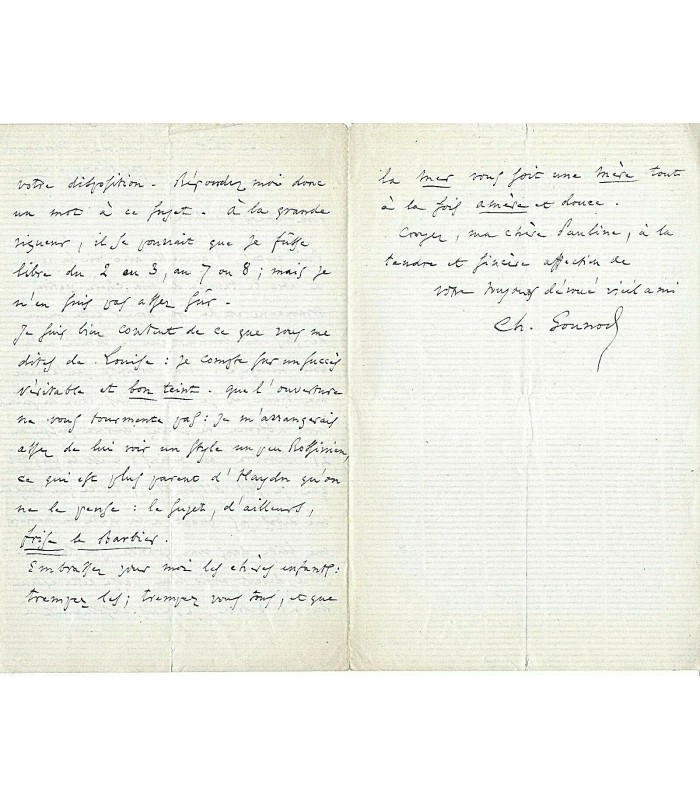 votre disposition. Répondez moi donc
un mot à ce sujet. à la grande
rigueur, il se pourrait que je fûsse
libre du 2 au 3, au 7 ou 8 ; mais je
n'en suis pas assez sûr.
Je suis bien content de ce que vous me
dites de Louise : je compte sur un succès
véritable et bon teint. que l'ouverture
ne vous tourmente pas : je m'arrangerais
assez de lui voir un style un peu Rossinien,
ce qui est plus parent d'Haydn qu'on
ne le pense : le sujet, d'ailleurs,
frise le Barbier.
Embrassez pour moi les chères enfants :
trempez les ; trempez vous tous, et que
la mer vous soit une mère tout
à la fois amère et douce.
Croyez, ma chère Pauline, à la
tendre et sincère affection de
votre toujours dévoué vieil ami
Ch. Gounod